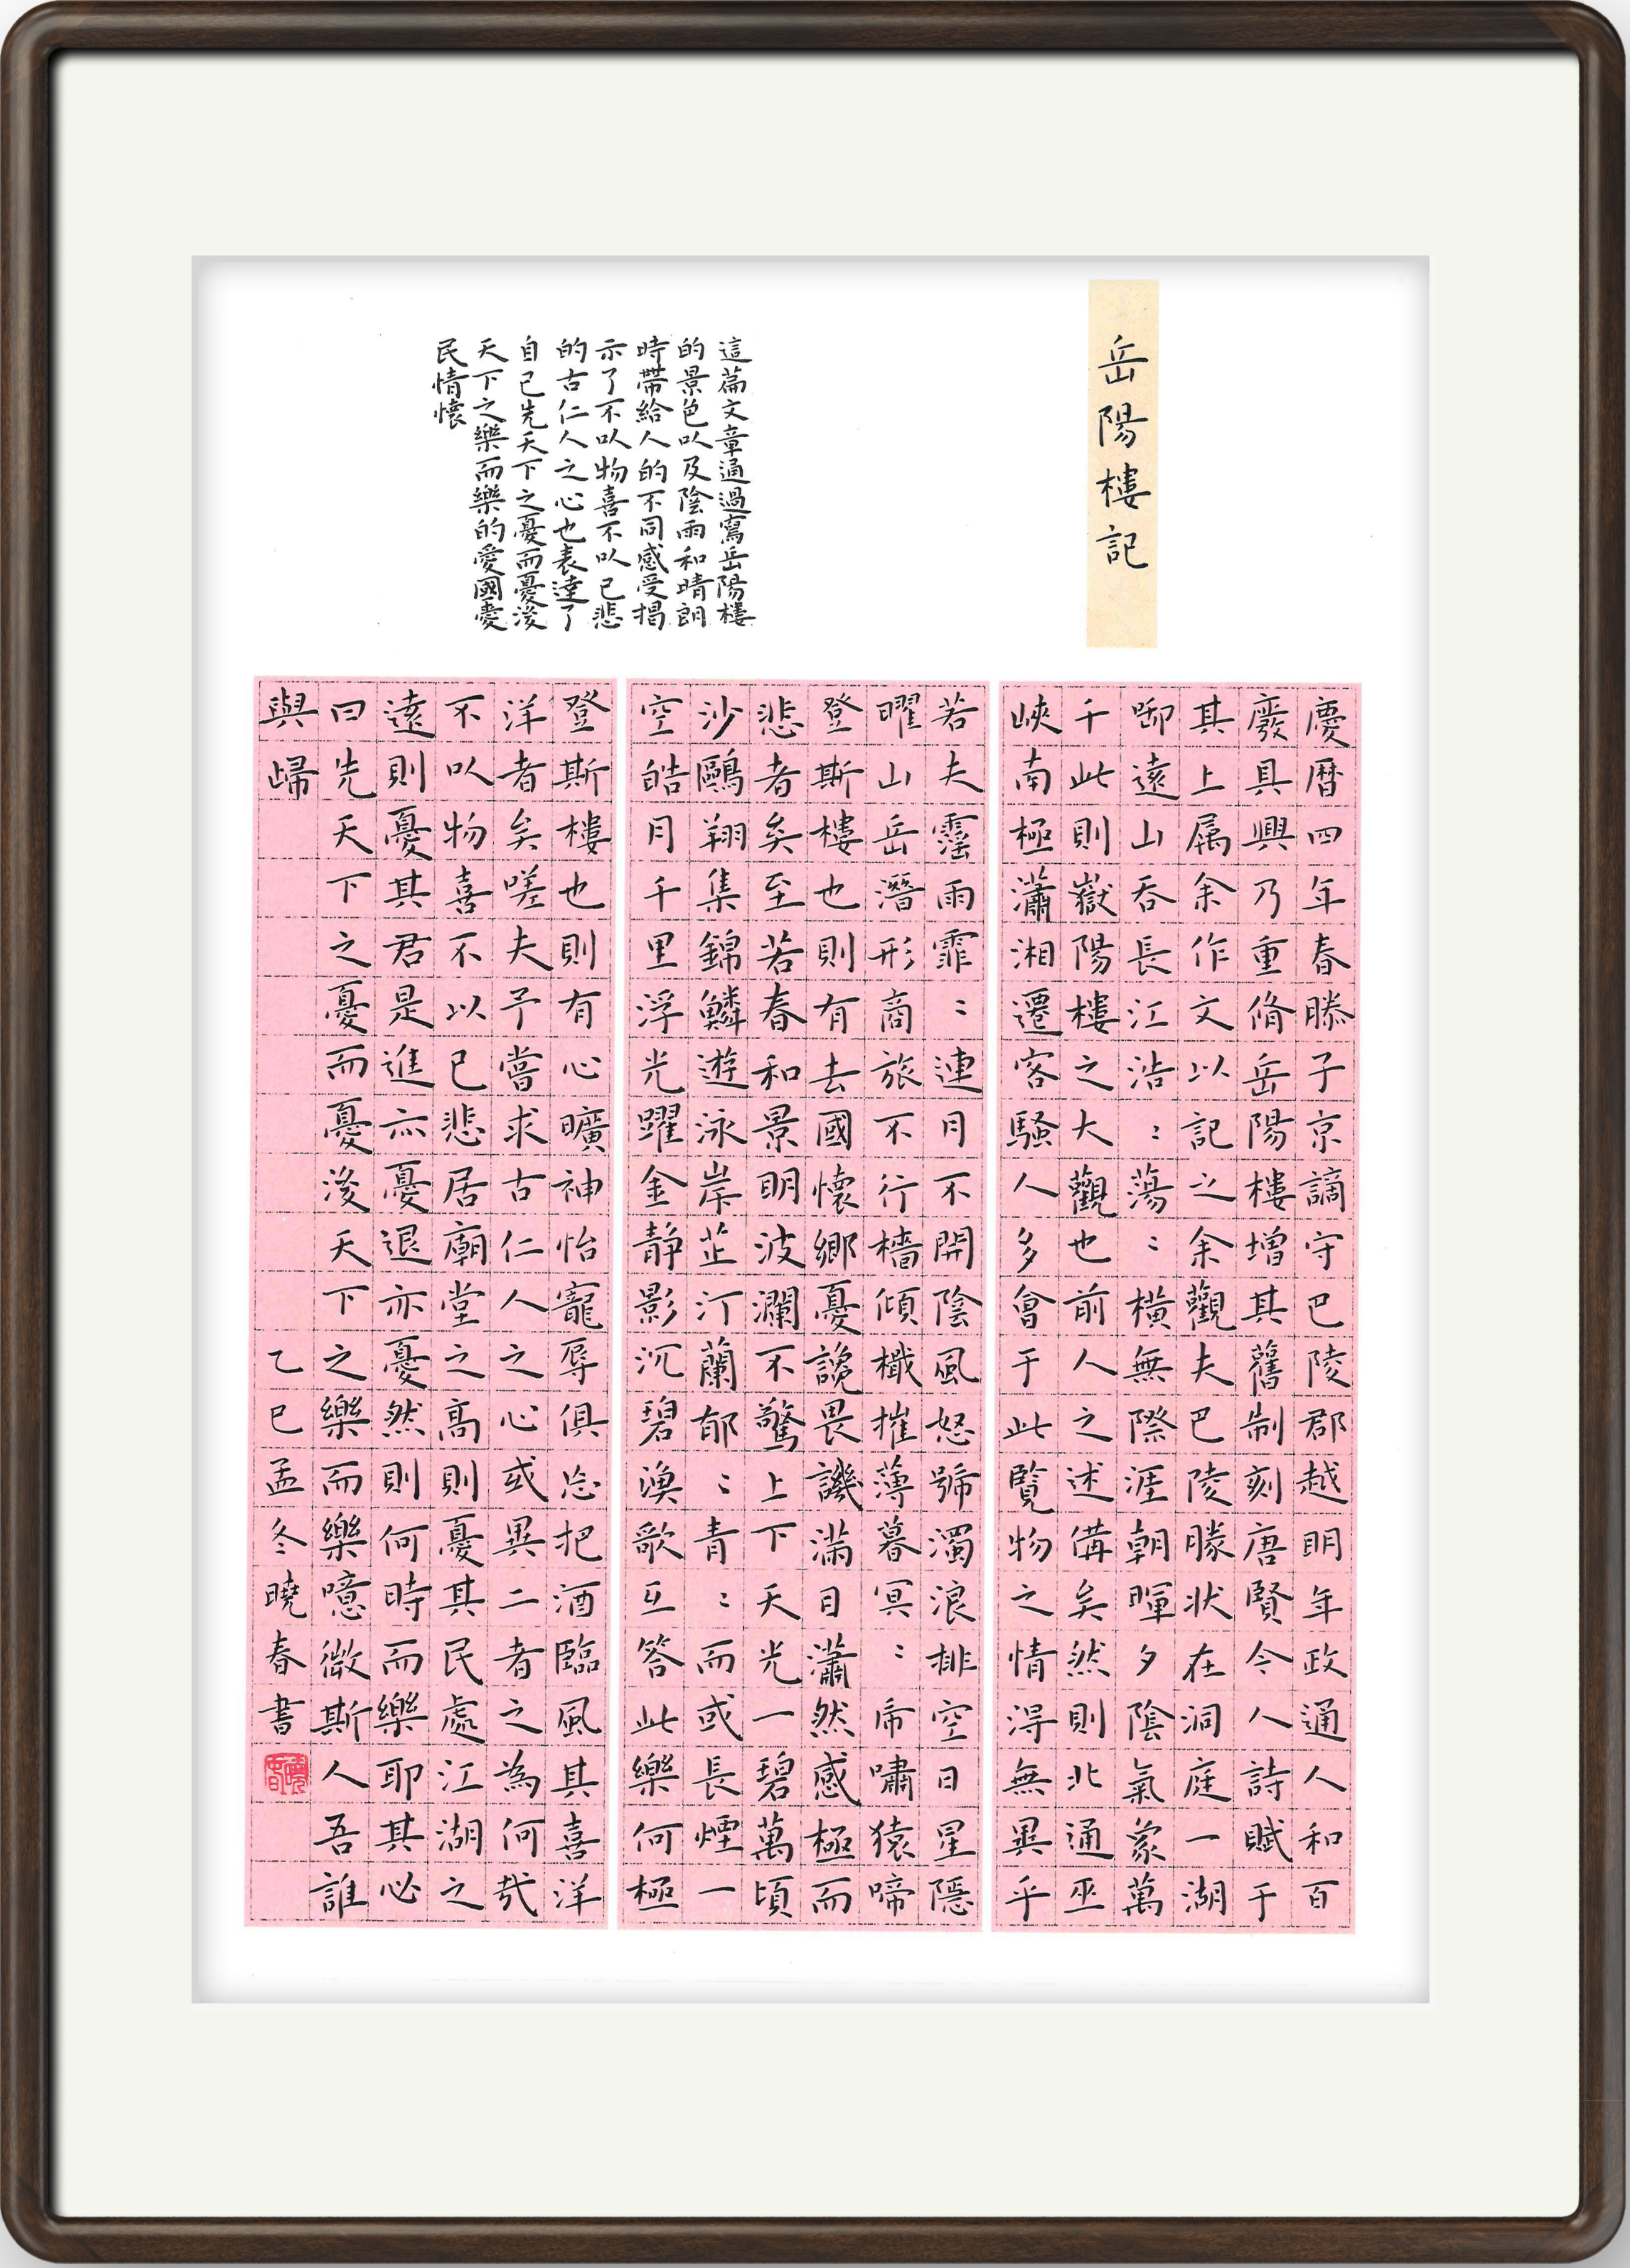 岳陽樓記
這篇文章通過寫岳陽樓
的景色以及陰雨和晴朗
時帶給人的不同感受揭
示了不以物喜不以己悲
的古仁人之心也表達了
自己先天下之憂而憂後
天下之樂而樂的愛國愛
民情懷
慶曆四年春滕子京謫守巴陵郡越明年政通人和百
廢具興乃重脩岳陽樓增其舊制刻唐賢今人詩賦于
其上属余作文以記之余觀夫巴陵勝状在洞庭一湖
啣遠山吞長江浩〻蕩〻橫無際涯朝暉夕陰氣象萬
千此則嶽陽樓之大觀也前人之述備矣然則北通巫
峽南極瀟湘遷客騷人多會于此覽物之情得無異乎
若夫霪雨霏〻連月不開陰風怒號濁浪排空日星隱
曜山岳潛形商旅不行檣傾檝摧薄暮冥〻虎嘯猿啼
登斯樓也則有去國懷鄉憂讒畏譏滿目瀟然感極而
悲者矣至若春和景明波瀾不驚上下天光一碧萬頃
沙鷗翔集錦鱗遊泳岸芷汀蘭郁〻青〻而或長煙一
空皓月千里浮光躍金静影沉碧漁歌互答此樂何極
登斯樓也則有心曠神怡寵辱俱忘把酒臨風其喜洋
洋者矣嗟夫予嘗求古仁人之心或異二者之為何哉
不以物喜不以已悲居廟堂之高則憂其民處江湖之
遠則憂其君是進亦憂退亦憂然則何時而樂耶其必
曰先天下之憂而憂後天下之樂而樂噫微斯人吾誰
與歸
乙巳孟冬曉春書
曉春